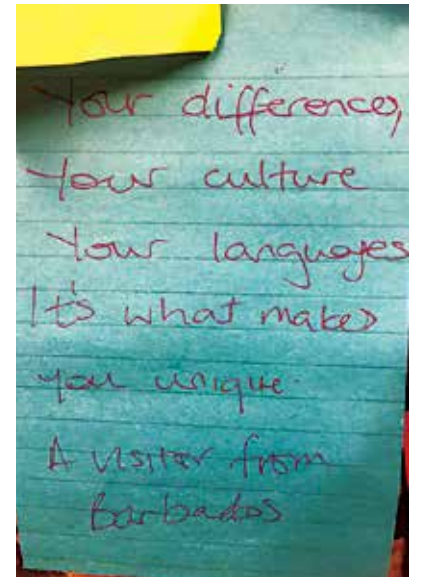 Your differences,
Your culture
Your languages
It's what makes
you unique.
A visiter from
Barbados